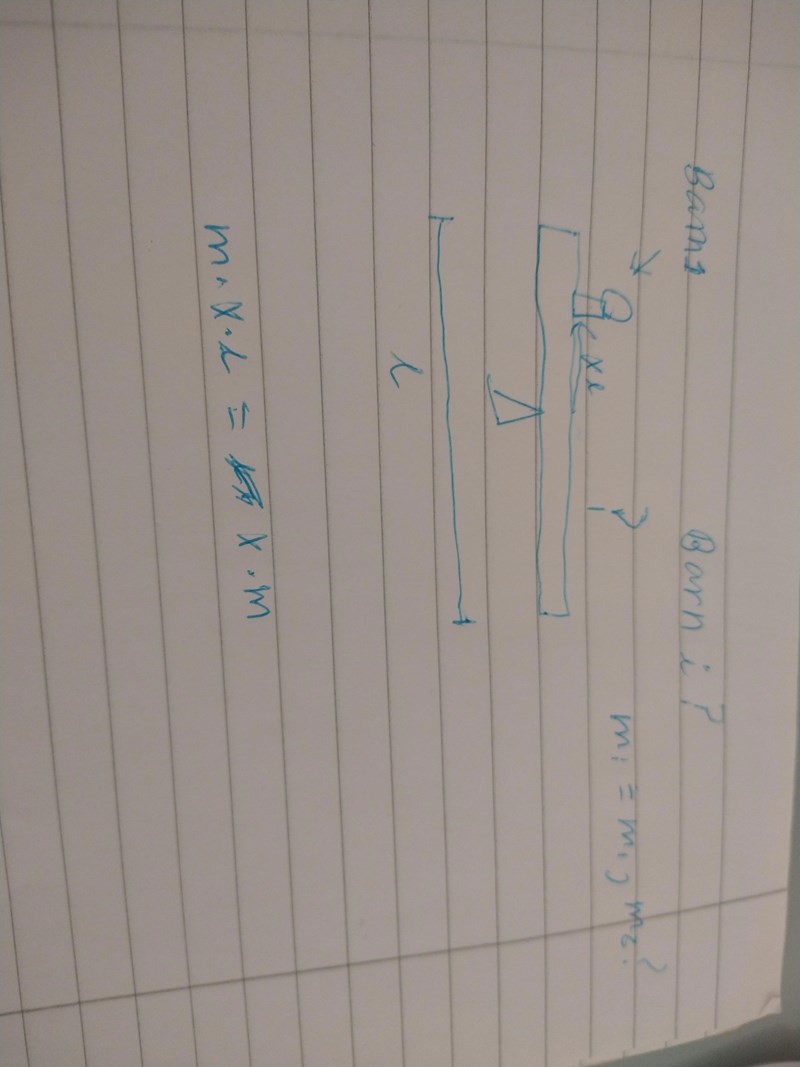 Barn 1 Barn i?
m₁ = m₁, m₂?
x₁ ?
L
m · x · L = x · m